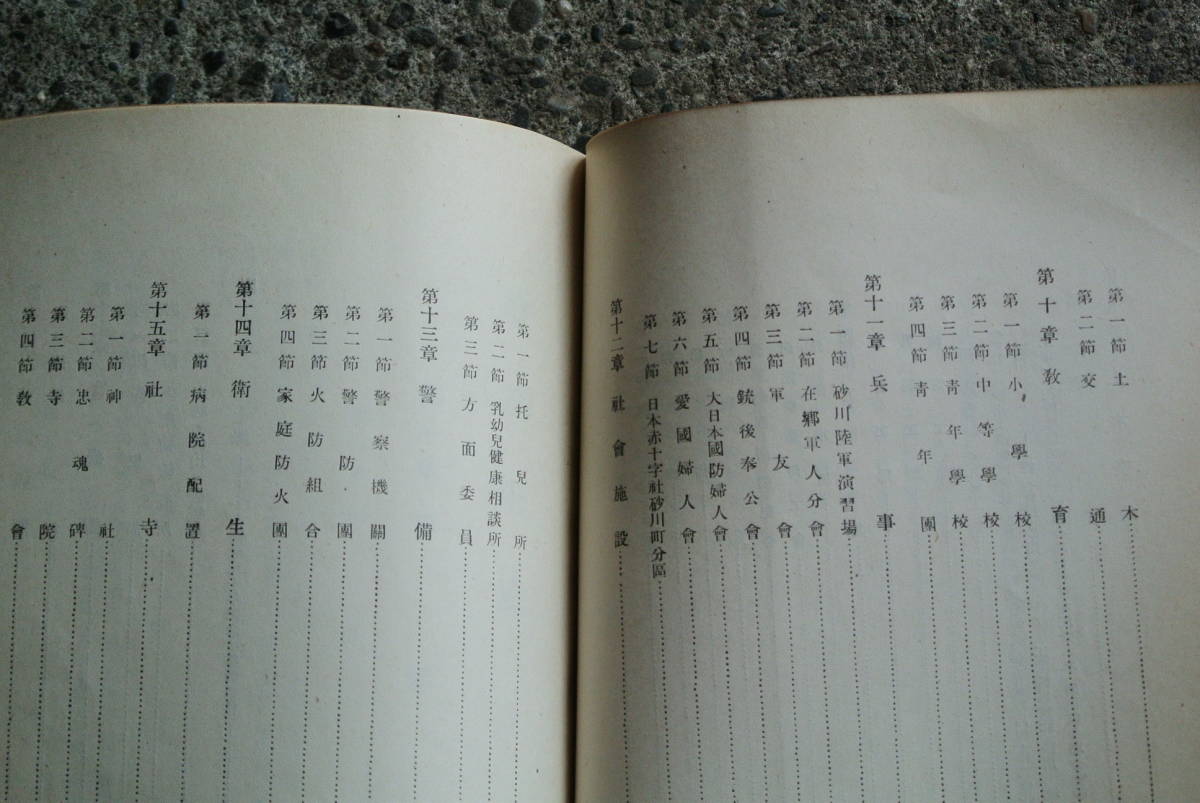 第一節 土木
第二節 交通
第十章 教育
第一節 小學校
第二節 中等學校
第三節 青年學校
第四節 青年團
第十一章 兵事
第一節 砂川陸軍演習場
第二節 在鄕軍人分會
第三節 軍友會
第四節 銃後奉公會
第五節 大日本國防婦人會
第六節 愛國婦人會
第七節 日本赤十字社砂川町分區
第十二章 社會施設
第一節 托兒所
第二節 乳幼兒健康相談所
第三節 方面委員
第十三章 警備
第一節 警察機關
第二節 警防團
第三節 火防組合
第四節 家庭防火團
第十四章 衛生
第一節 病院配置
第十五章 社寺
第一節 神社
第二節 忠魂碑
第三節 寺院
第四節 敎會